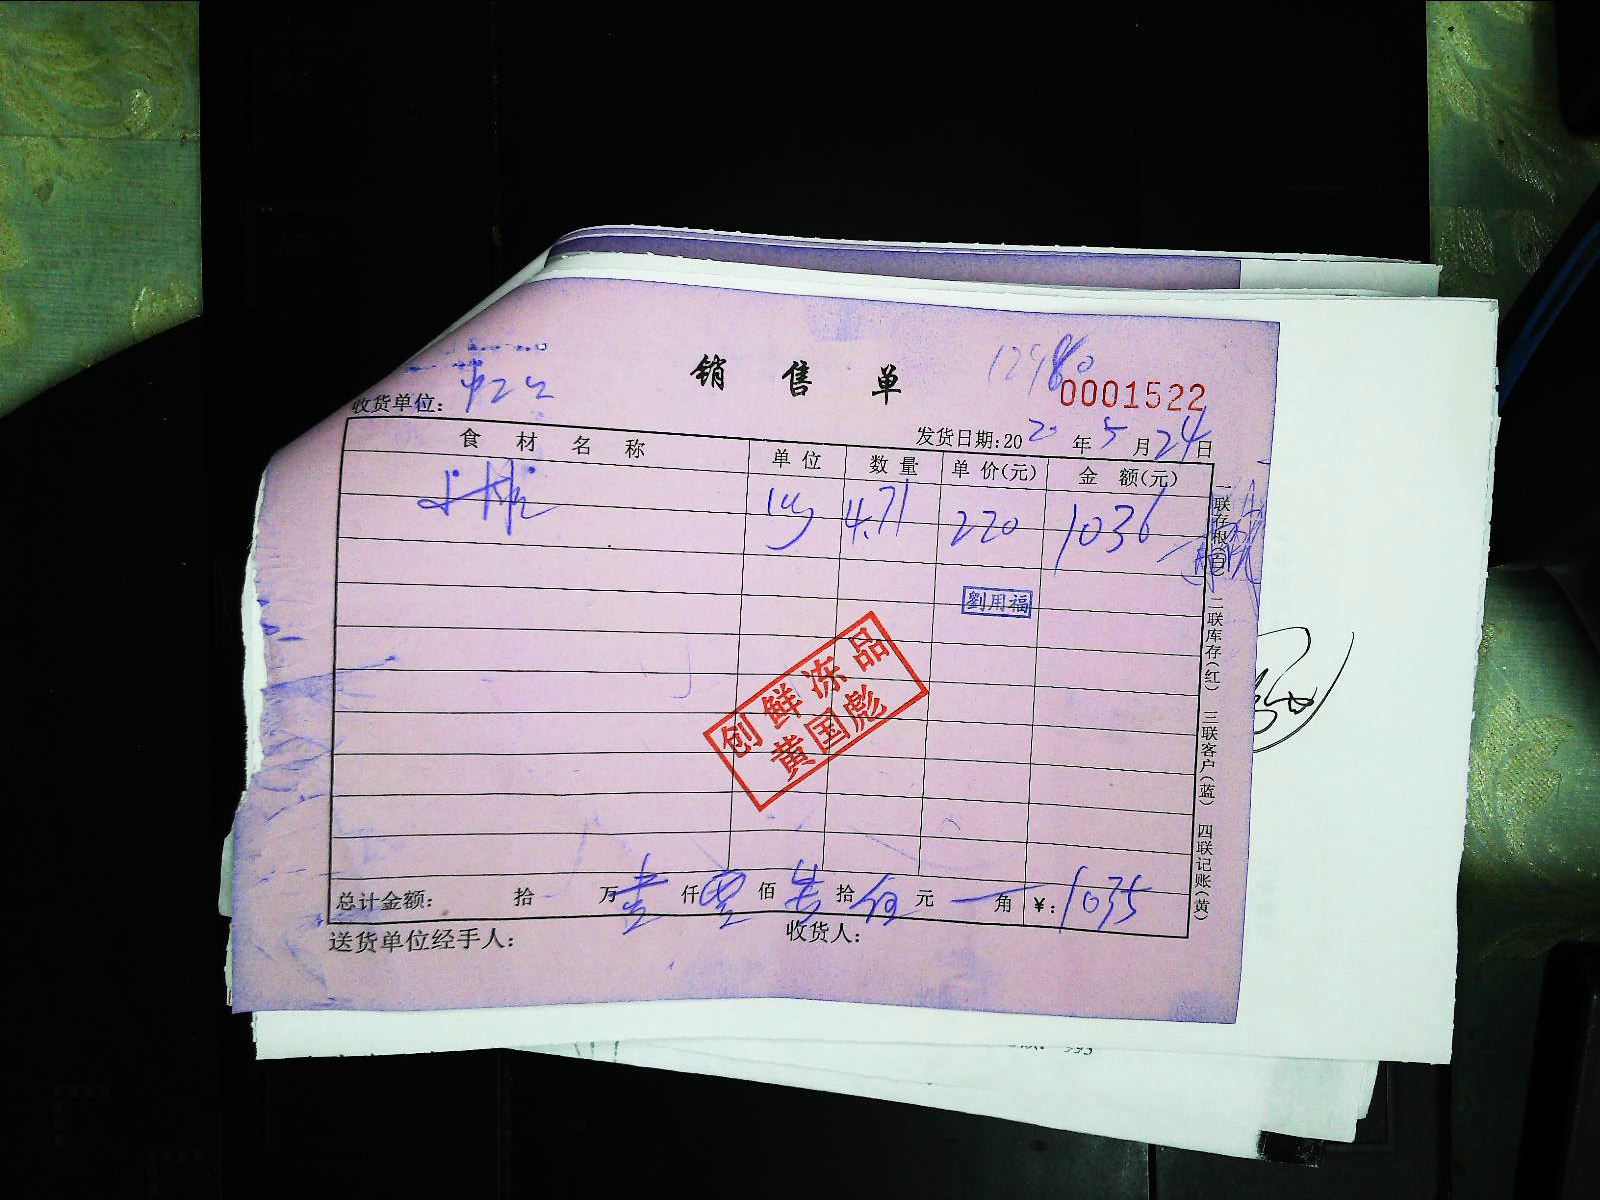 销售单
0001522
收货单位:
发货日期:2020年5月24日
食材名称 单位 数量 单价(元) 金额(元)
4.71 220 1036
劉用福
创鲜冻品
黄国彪
总计金额: 拾 万壹仟零佰叁拾伍元 角 ¥:1035
送货单位经手人: 收货人:
一联存根(白) 二联库存(红) 三联客户(蓝) 四联记账(黄)